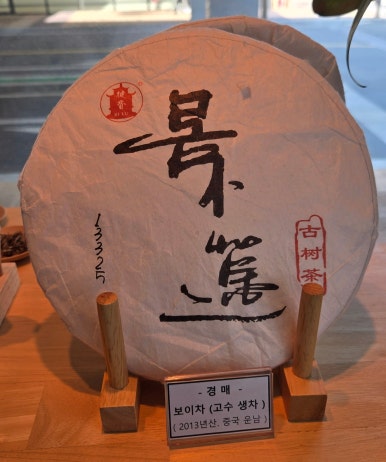 景
邁
13325
古树茶
- 경 매 -
보이차 (고수 생차 )
( 2013년산, 중국 운남 )